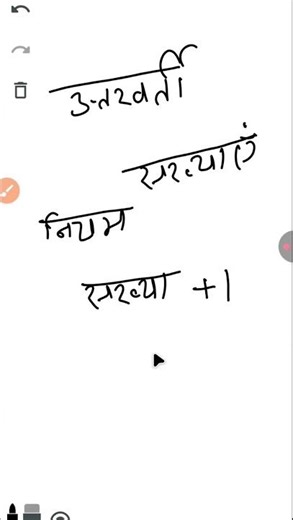 उत्तरवर्ती
संख्याएँ
नियम
संख्या +1